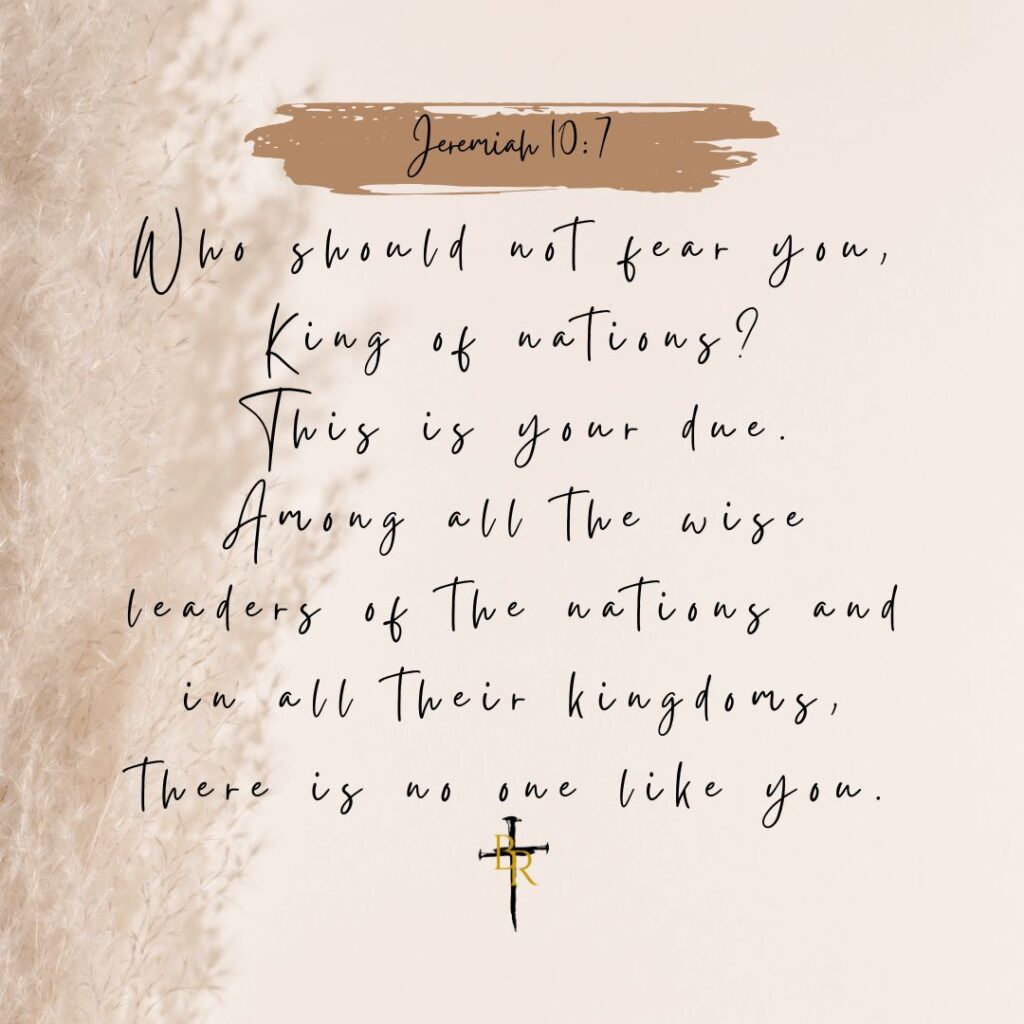 Jeremiah 10:7
Who should not fear you,
King of nations?
This is your due.
Among all the wise
leaders of the nations and
in all their kingdoms,
there is no one like you.
BR